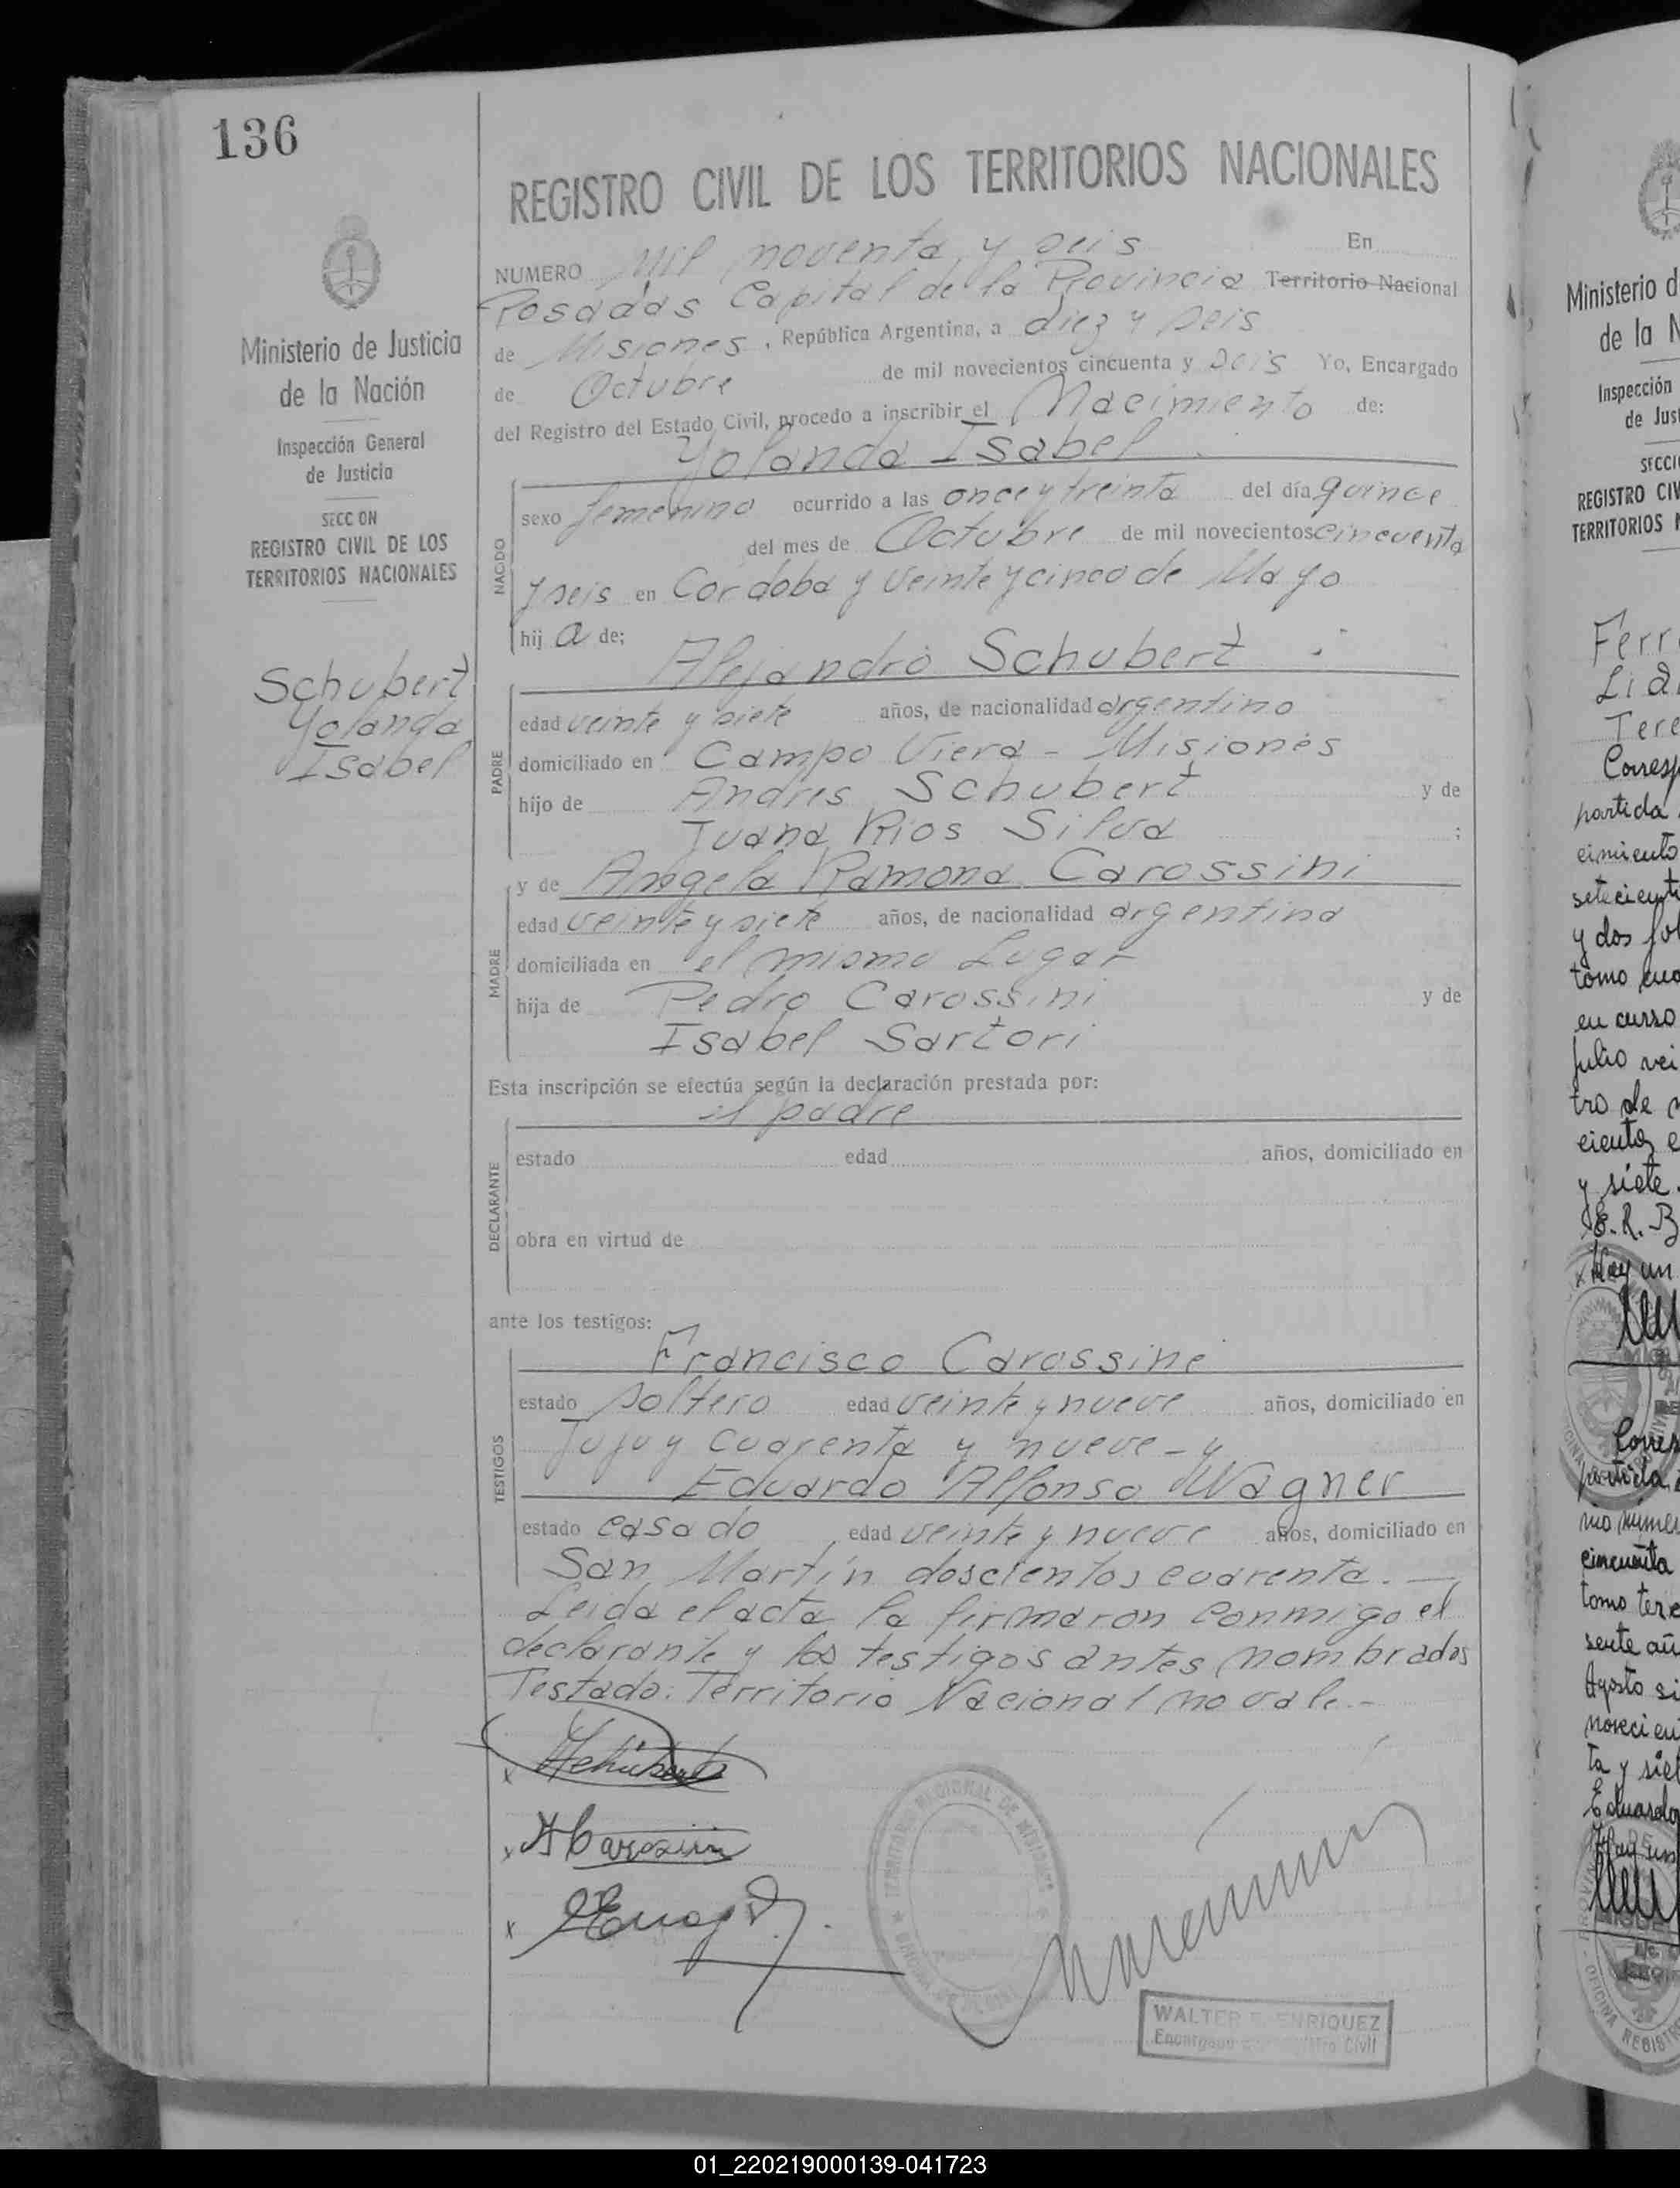 136
REGISTRO CIVIL DE LOS TERRITORIOS NACIONALES
NUMERO Mil noventa y seis En
Posadas Capital de la Provincia Territorio Nacional
de Misiones, República Argentina, a diez y seis
de Octubre de mil novecientos cincuenta y seis Yo, Encargado
del Registro del Estado Civil, procedo a inscribir el Nacimiento de:
Yolanda Isabel
Ministerio de Justicia
de la Nación
Inspección General
de Justicia
SECCION
REGISTRO CIVIL DE LOS
TERRITORIOS NACIONALES
Schubert
Yolanda
Isabel
NACIDO
sexo femenino ocurrido a las once y treinta del día quince
del mes de Octubre de mil novecientos cincuenta
y seis en Cordoba y veinte y cinco de Mayo
hij a de;
Alejandro Schubert
PADRE
edad veinte y siete años, de nacionalidad argentino
domiciliado en Campo Viera - Misiones
hijo de Andres Schubert y de
Juana Rios Silva ;
y de Angela Ramona Carossini
MADRE
edad veinte y siete años, de nacionalidad argentina
domiciliada en el mismo Lugar
hija de Pedro Carossini y de
Isabel Sartori
Esta inscripción se efectúa según la declaración prestada por:
el padre
DECLARANTE
estado edad años, domiciliado en
obra en virtud de
ante los testigos:
Francisco Carossini
TESTIGOS
estado soltero edad veinte y nueve años, domiciliado en
Jujuy cuarenta y nueve - y
Eduardo Alfonso Wagner
estado casado edad veinte y nueve años, domiciliado en
San Martín doscientos cuarenta. —
Leida el acta la firmaron conmigo el
declarante y los testigos antes nombrados
Testado: Territorio Nacional no vale. -
WALTER ENRIQUEZ
Encargado Registro Civil
Ministerio d
de la N
Inspección
de Just
SECCI
REGISTRO CIV
TERRITORIOS N
Ferr
Lid
Tere
Corresp
partida
cimiento
setecient
y dos fol
tomo cua
en curso
Julio vei
tro de
cientos
y siete.
E. R. B
Hay un
Corres
partida
mo númer
cincuenta
tomo terc
sente añ
Agosto si
noveci en
ta y siet
Eduardo
Hay un
01_220219000139-041723